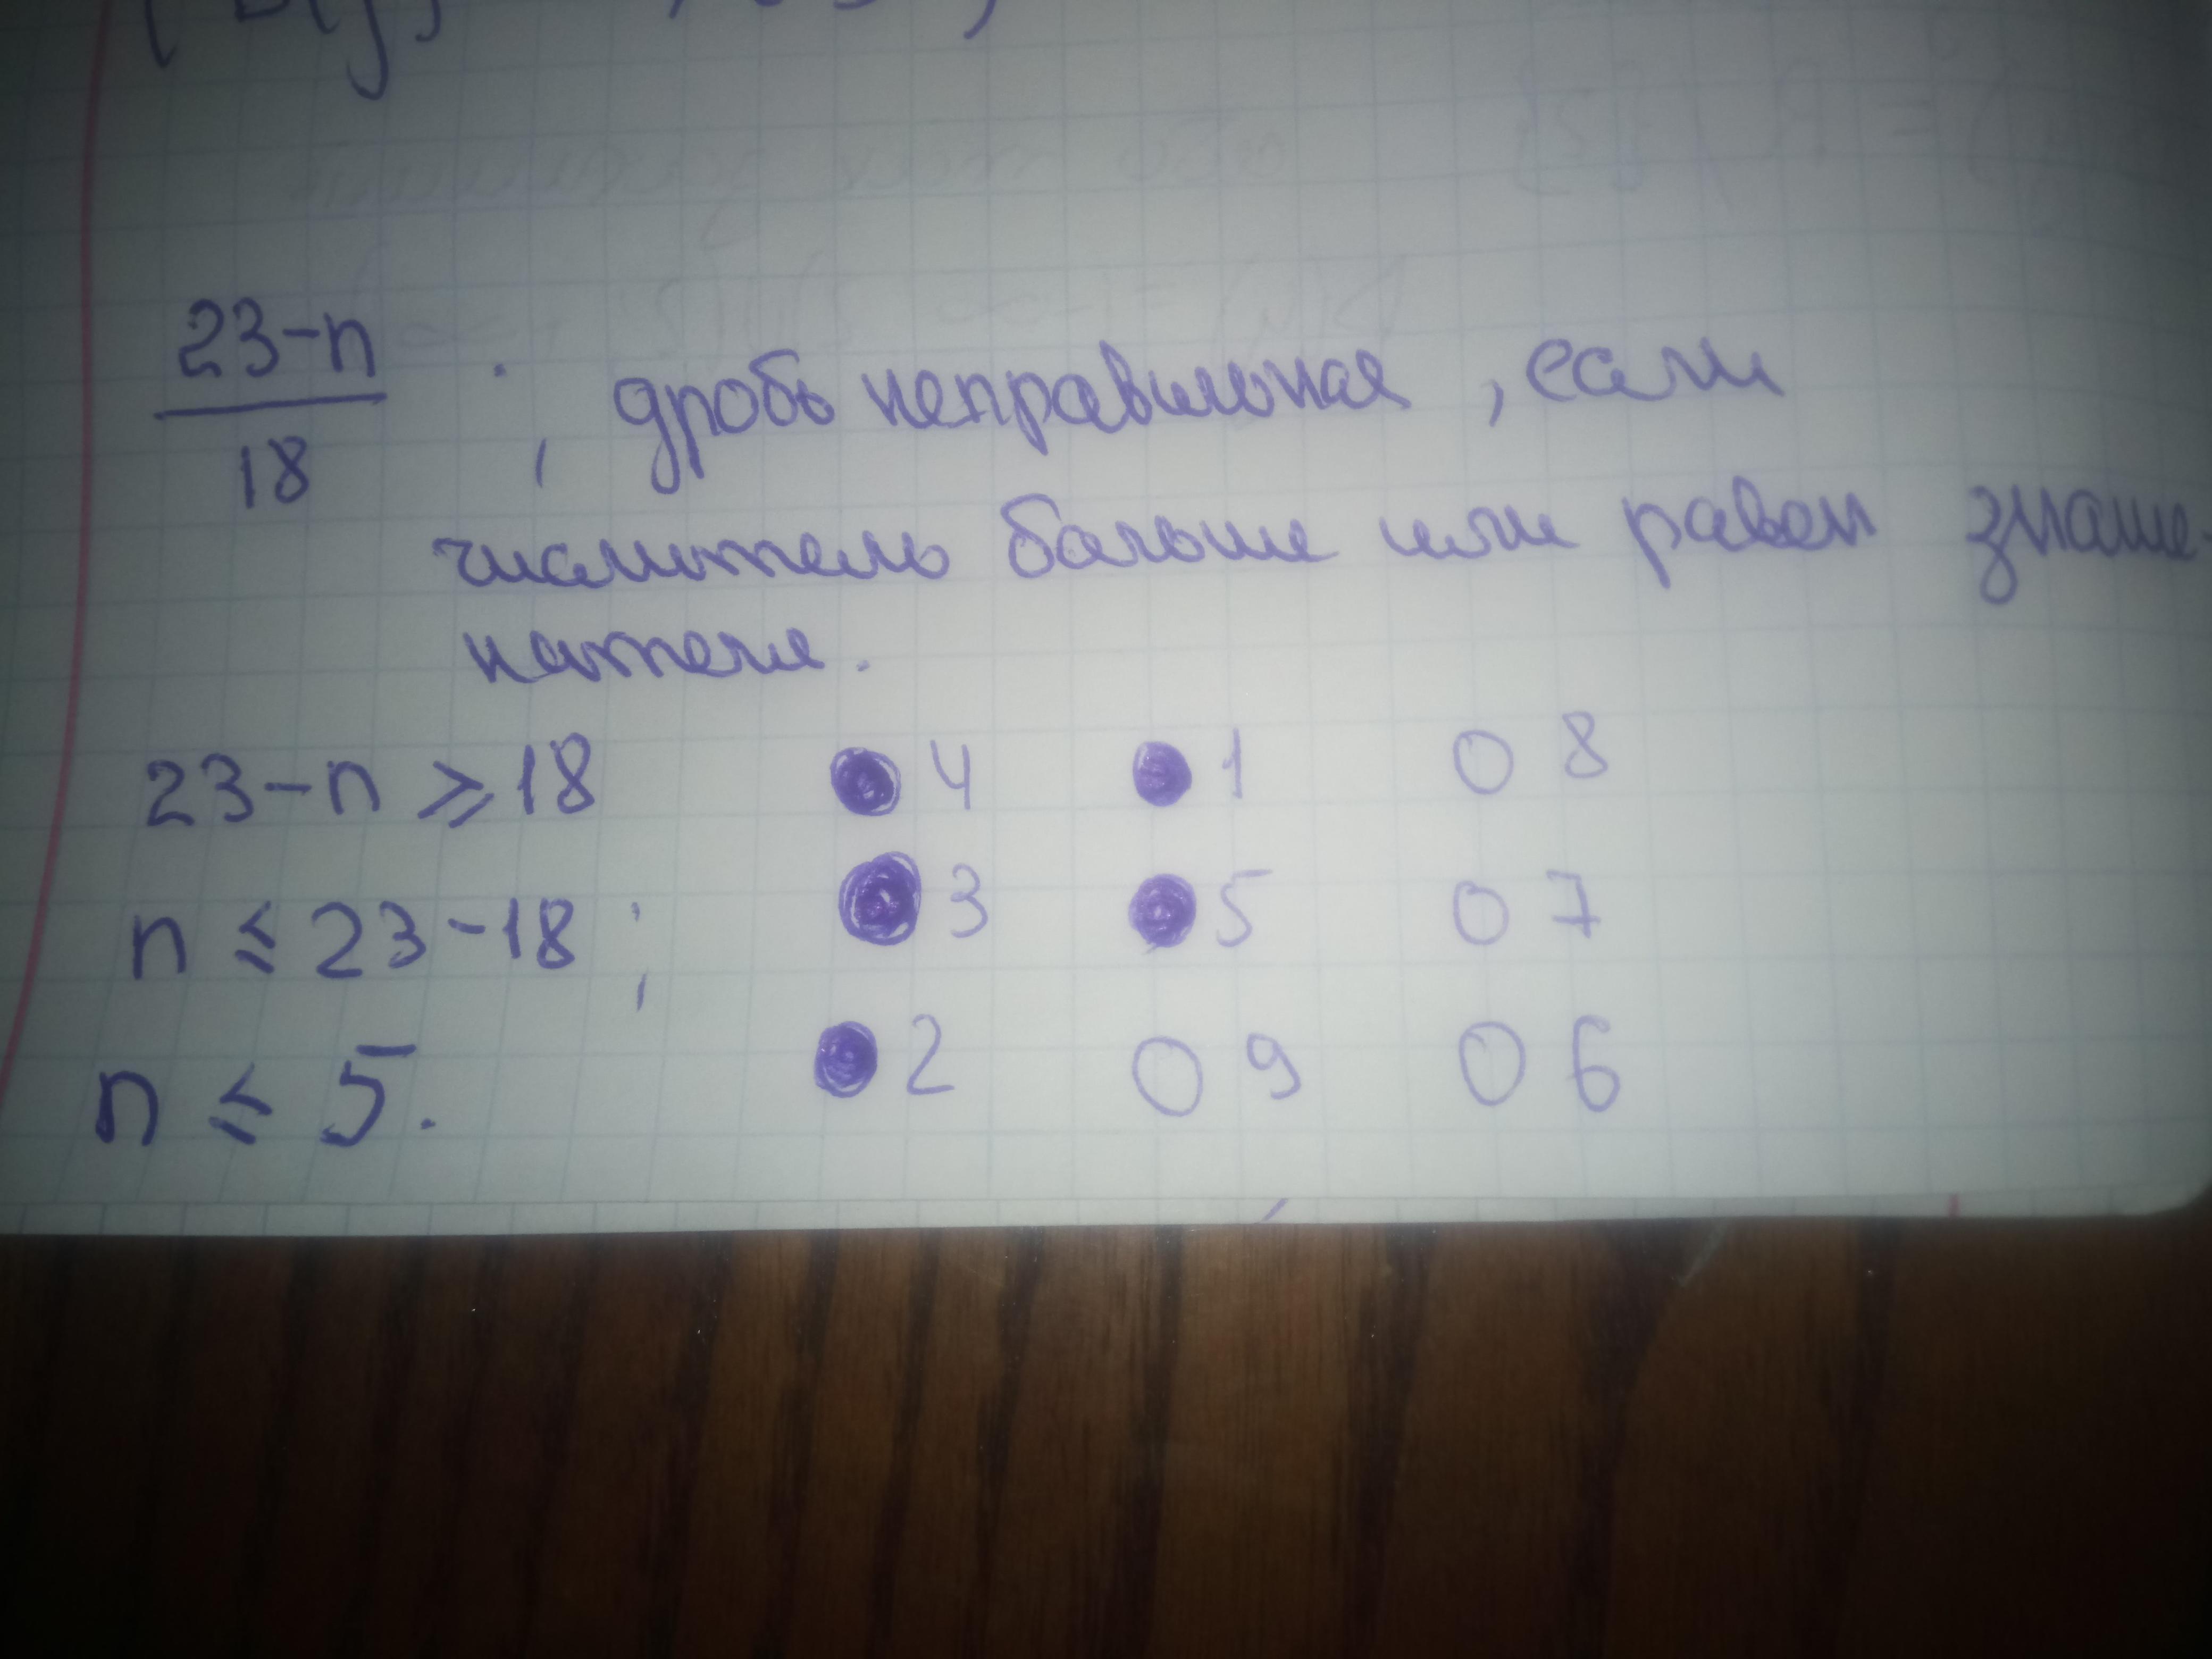 23-n
18
; дробь неправильная, если
числитель больше или равен знаме-
нателя.
23-n ⩾ 18
n ⩽ 23-18;
n ⩽ 5.
4 1 8
3 5 7
2 9 6